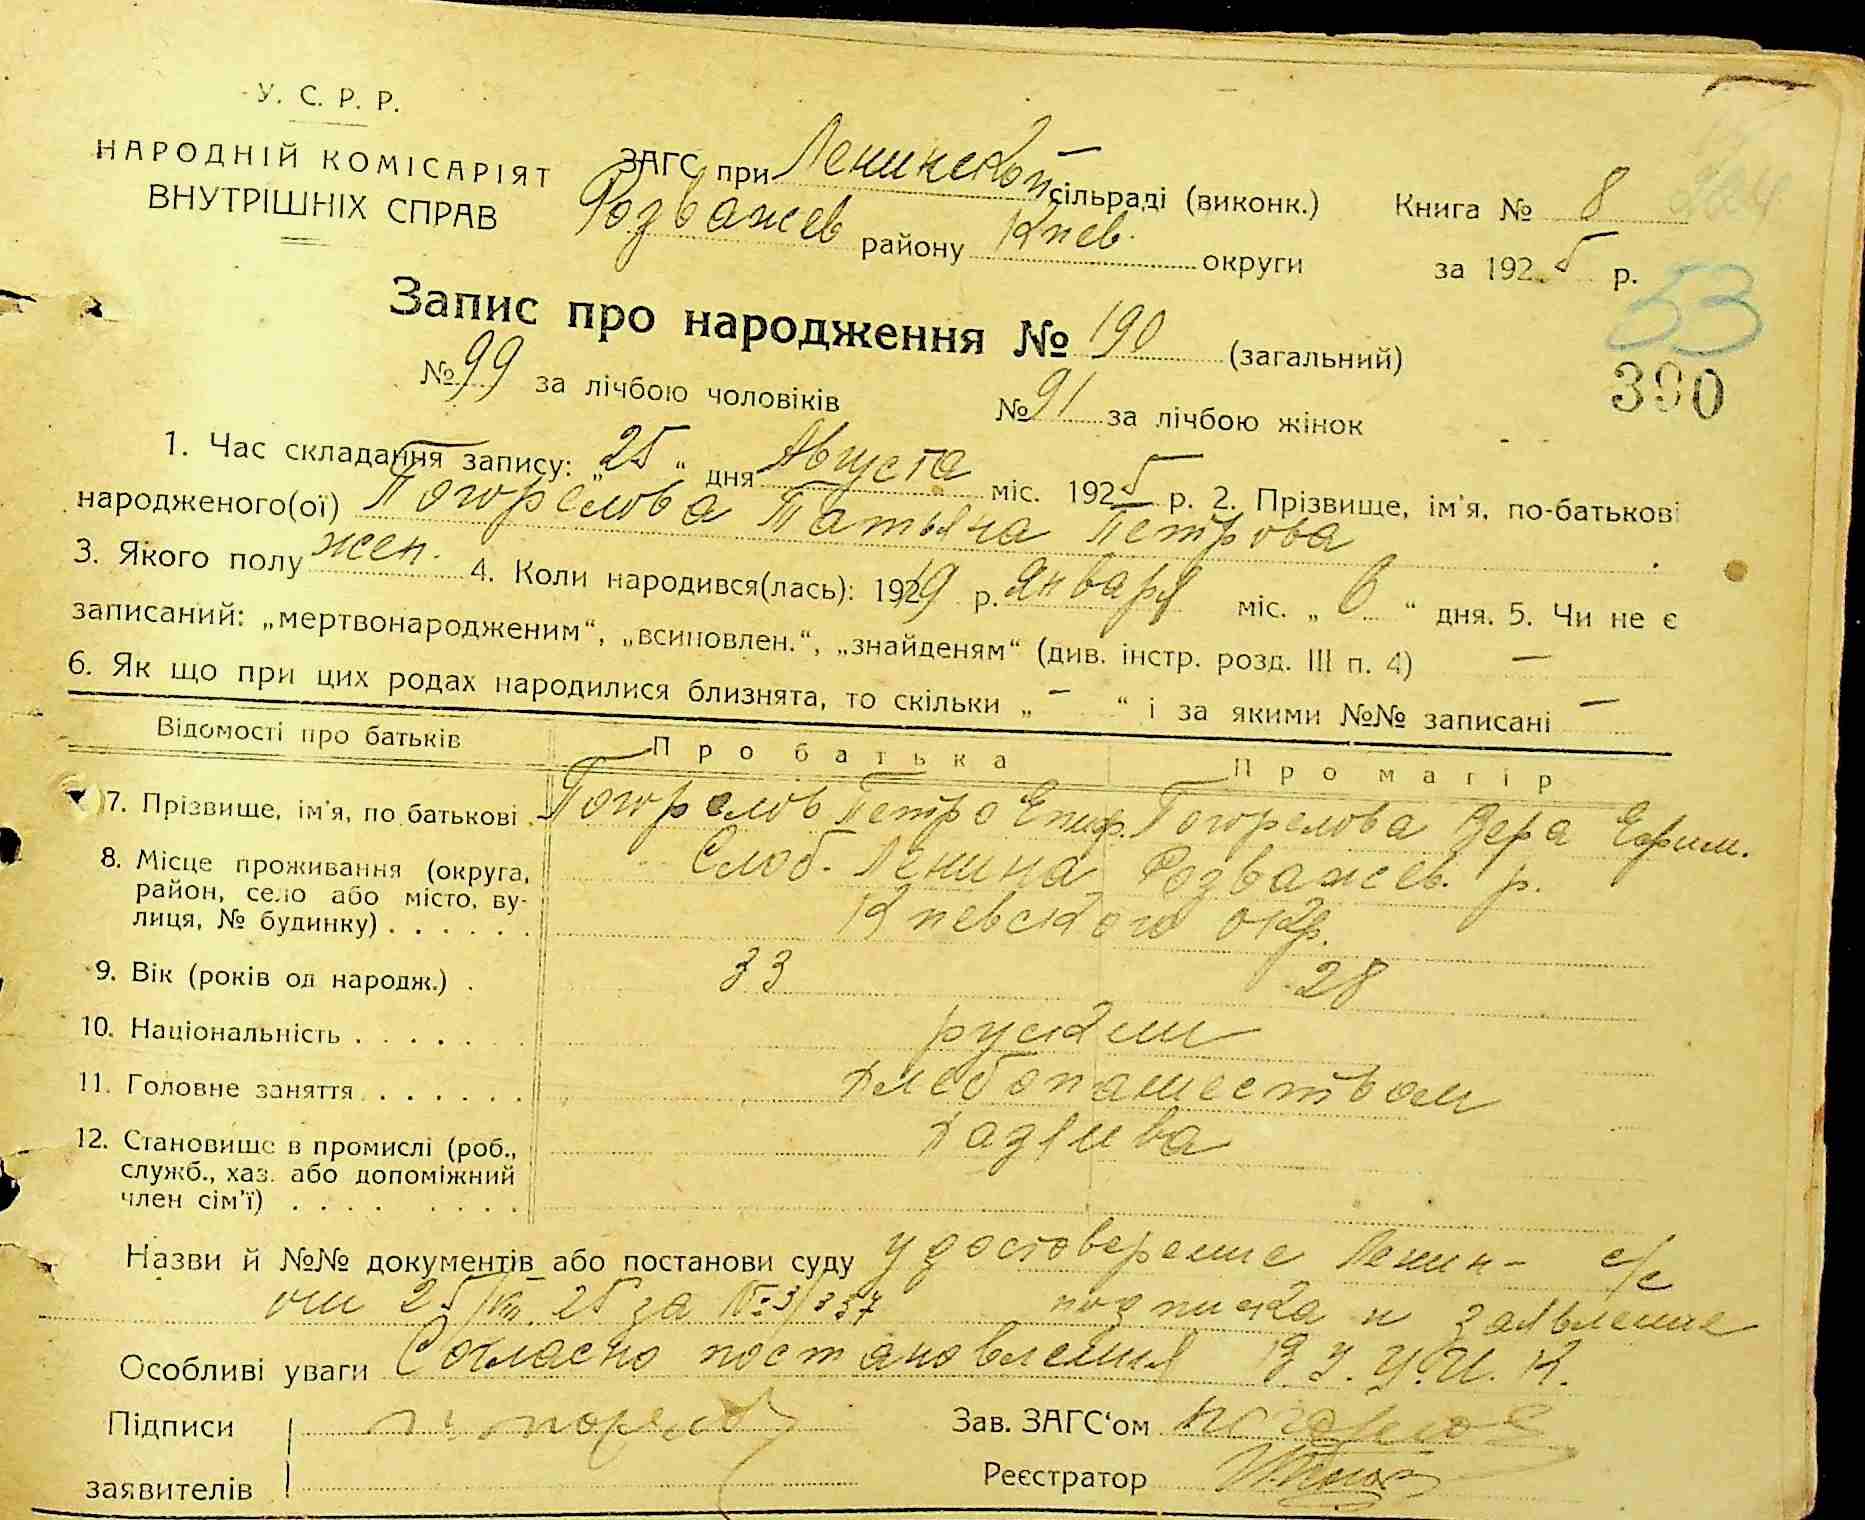 У. С. Р. Р.
НАРОДНІЙ КОМІСАРІЯТ
ВНУТРІШНІХ СПРАВ
ЗАГС при Ленинской сільраді (виконк.) Книга № 8
Розважев району Киев. округи за 1925 р.
53
Запис про народження № 190 (загальний)
390
№ 99 за лічбою чоловіків № 91 за лічбою жінок
1. Час складання запису: „25“ дня Августа міс. 1925 р. 2. Прізвище, ім'я, по-батькові
народженого(ої) Погорелова Татьяна Петрова
3. Якого полу жен. 4. Коли народився(лась): 1919 р. января міс. „6“ дня. 5. Чи не є
записаний: „мертвонародженим“, „всиновлен.“, „знайденям“ (див. інстр. розд. III п. 4) —
6. Як що при цих родах народилися близнята, то скільки „—“ і за якими №№ записані —
Відомості про батьків Про батька Про матір
7. Прізвище, ім'я, по батькові Погорелов Петро Епиф. Погорелова Вера Ефим.
8. Місце проживання (округа, район, село або місто, вулиця, № будинку) Слоб. Ленина Розважев. р.
Киевского окр.
9. Вік (років од народж.) 33 28
10. Національність руским
11. Головне заняття хлебопашеством
12. Становище в промислі (роб., служб., хаз. або допоміжний член сім'ї)
Назви й №№ документів або постанови суду удостоверение Ленин- с/с
от 25/VIII 25 за № 3/337 подписка и заявление
Особливі уваги Согласно постановления В У. Ц. И. К.
Підписи Зав. ЗАГС'ом
заявителів Реєстратор